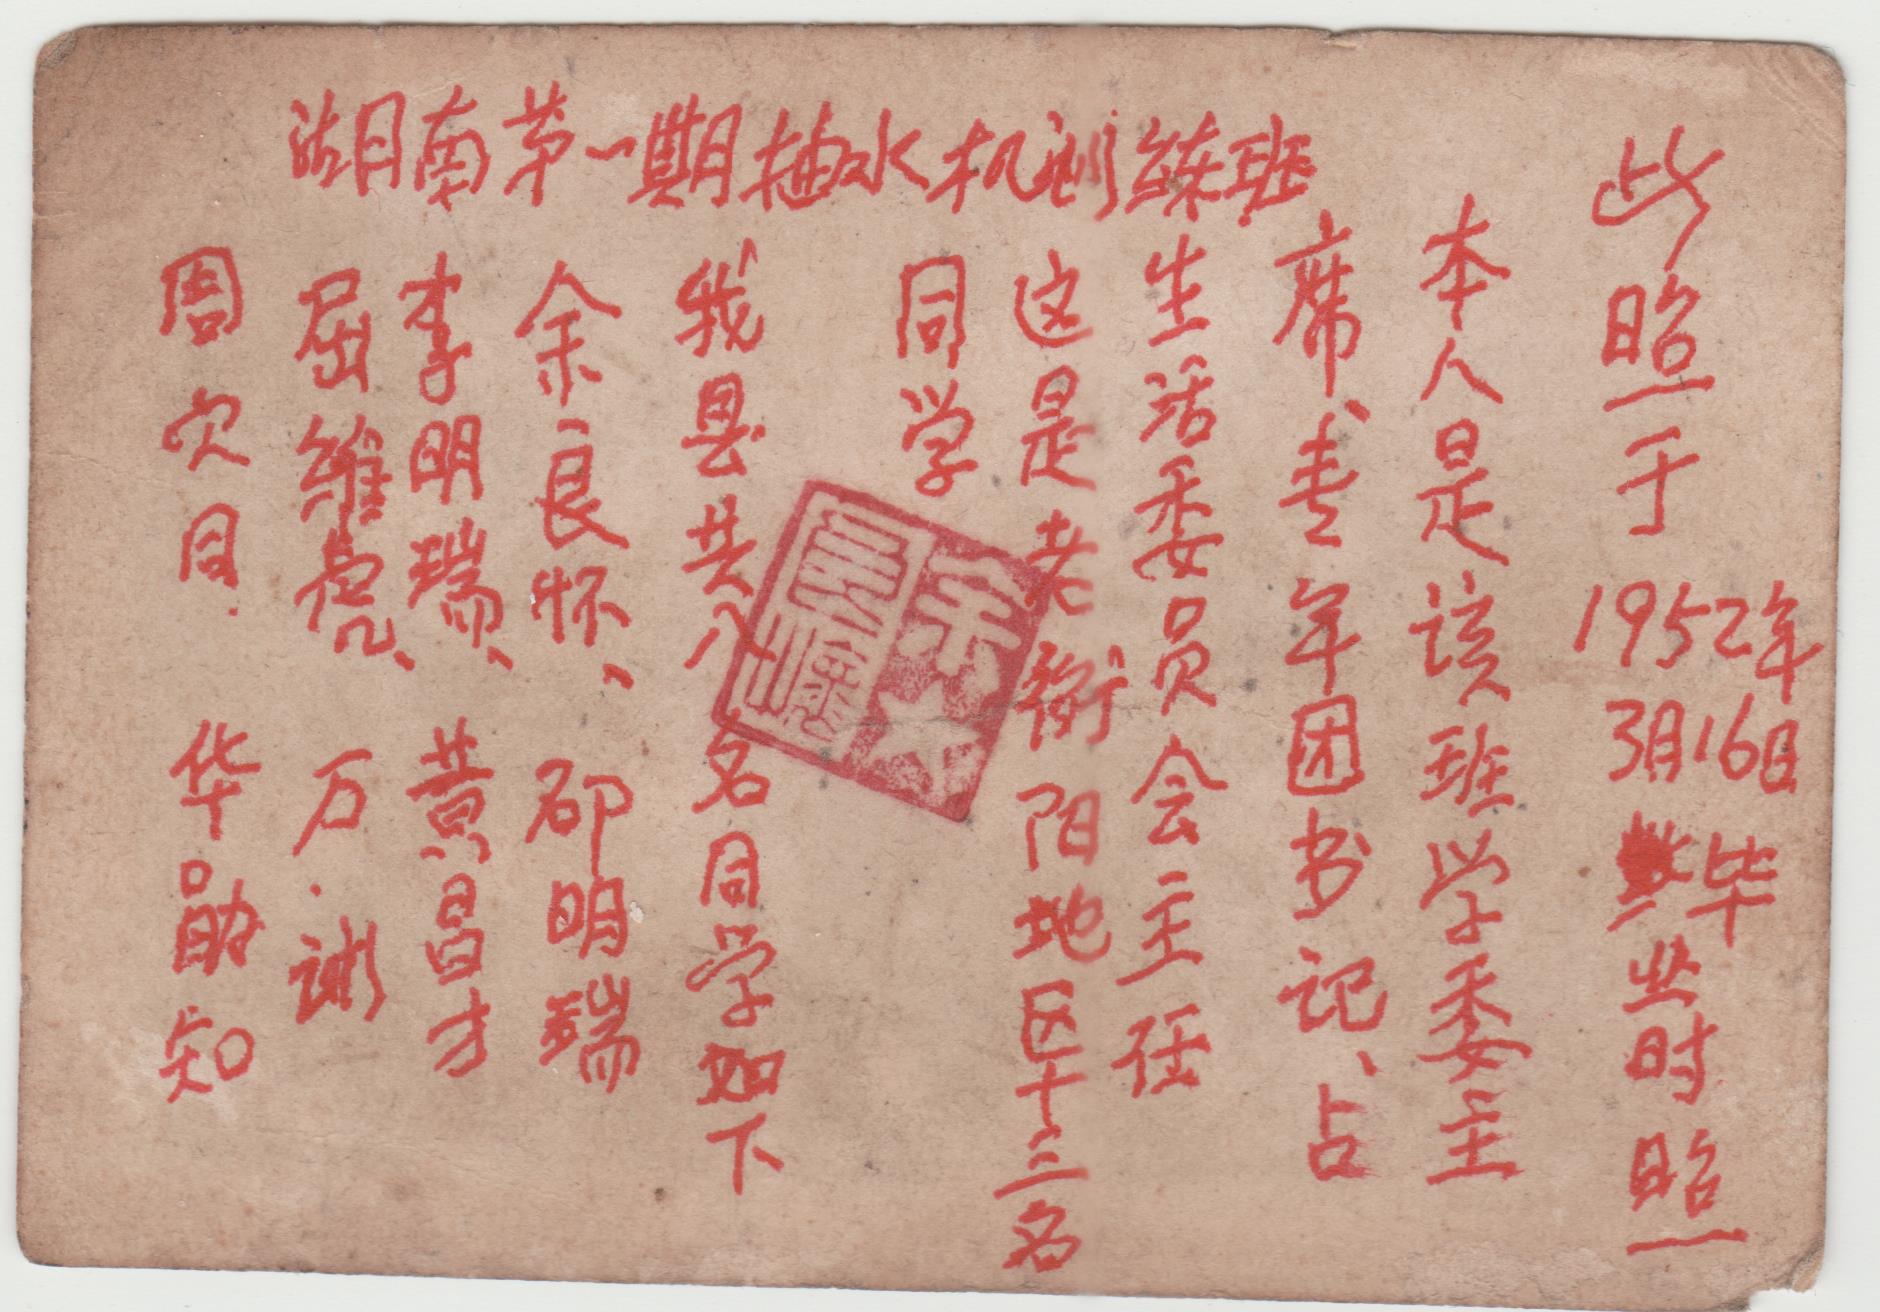 湖南第一期抽水机训練班
此照于1952年
3月16日毕
业时照
本人是该班学委主
席青年团书记、占
生活委员会主任
这是老衡阳地区十三名
同学
我县共八名同学如下
余良怀、邵明瑞
李明瑞、黄昌才
屈維亮、万
周 华勋知
余良懷